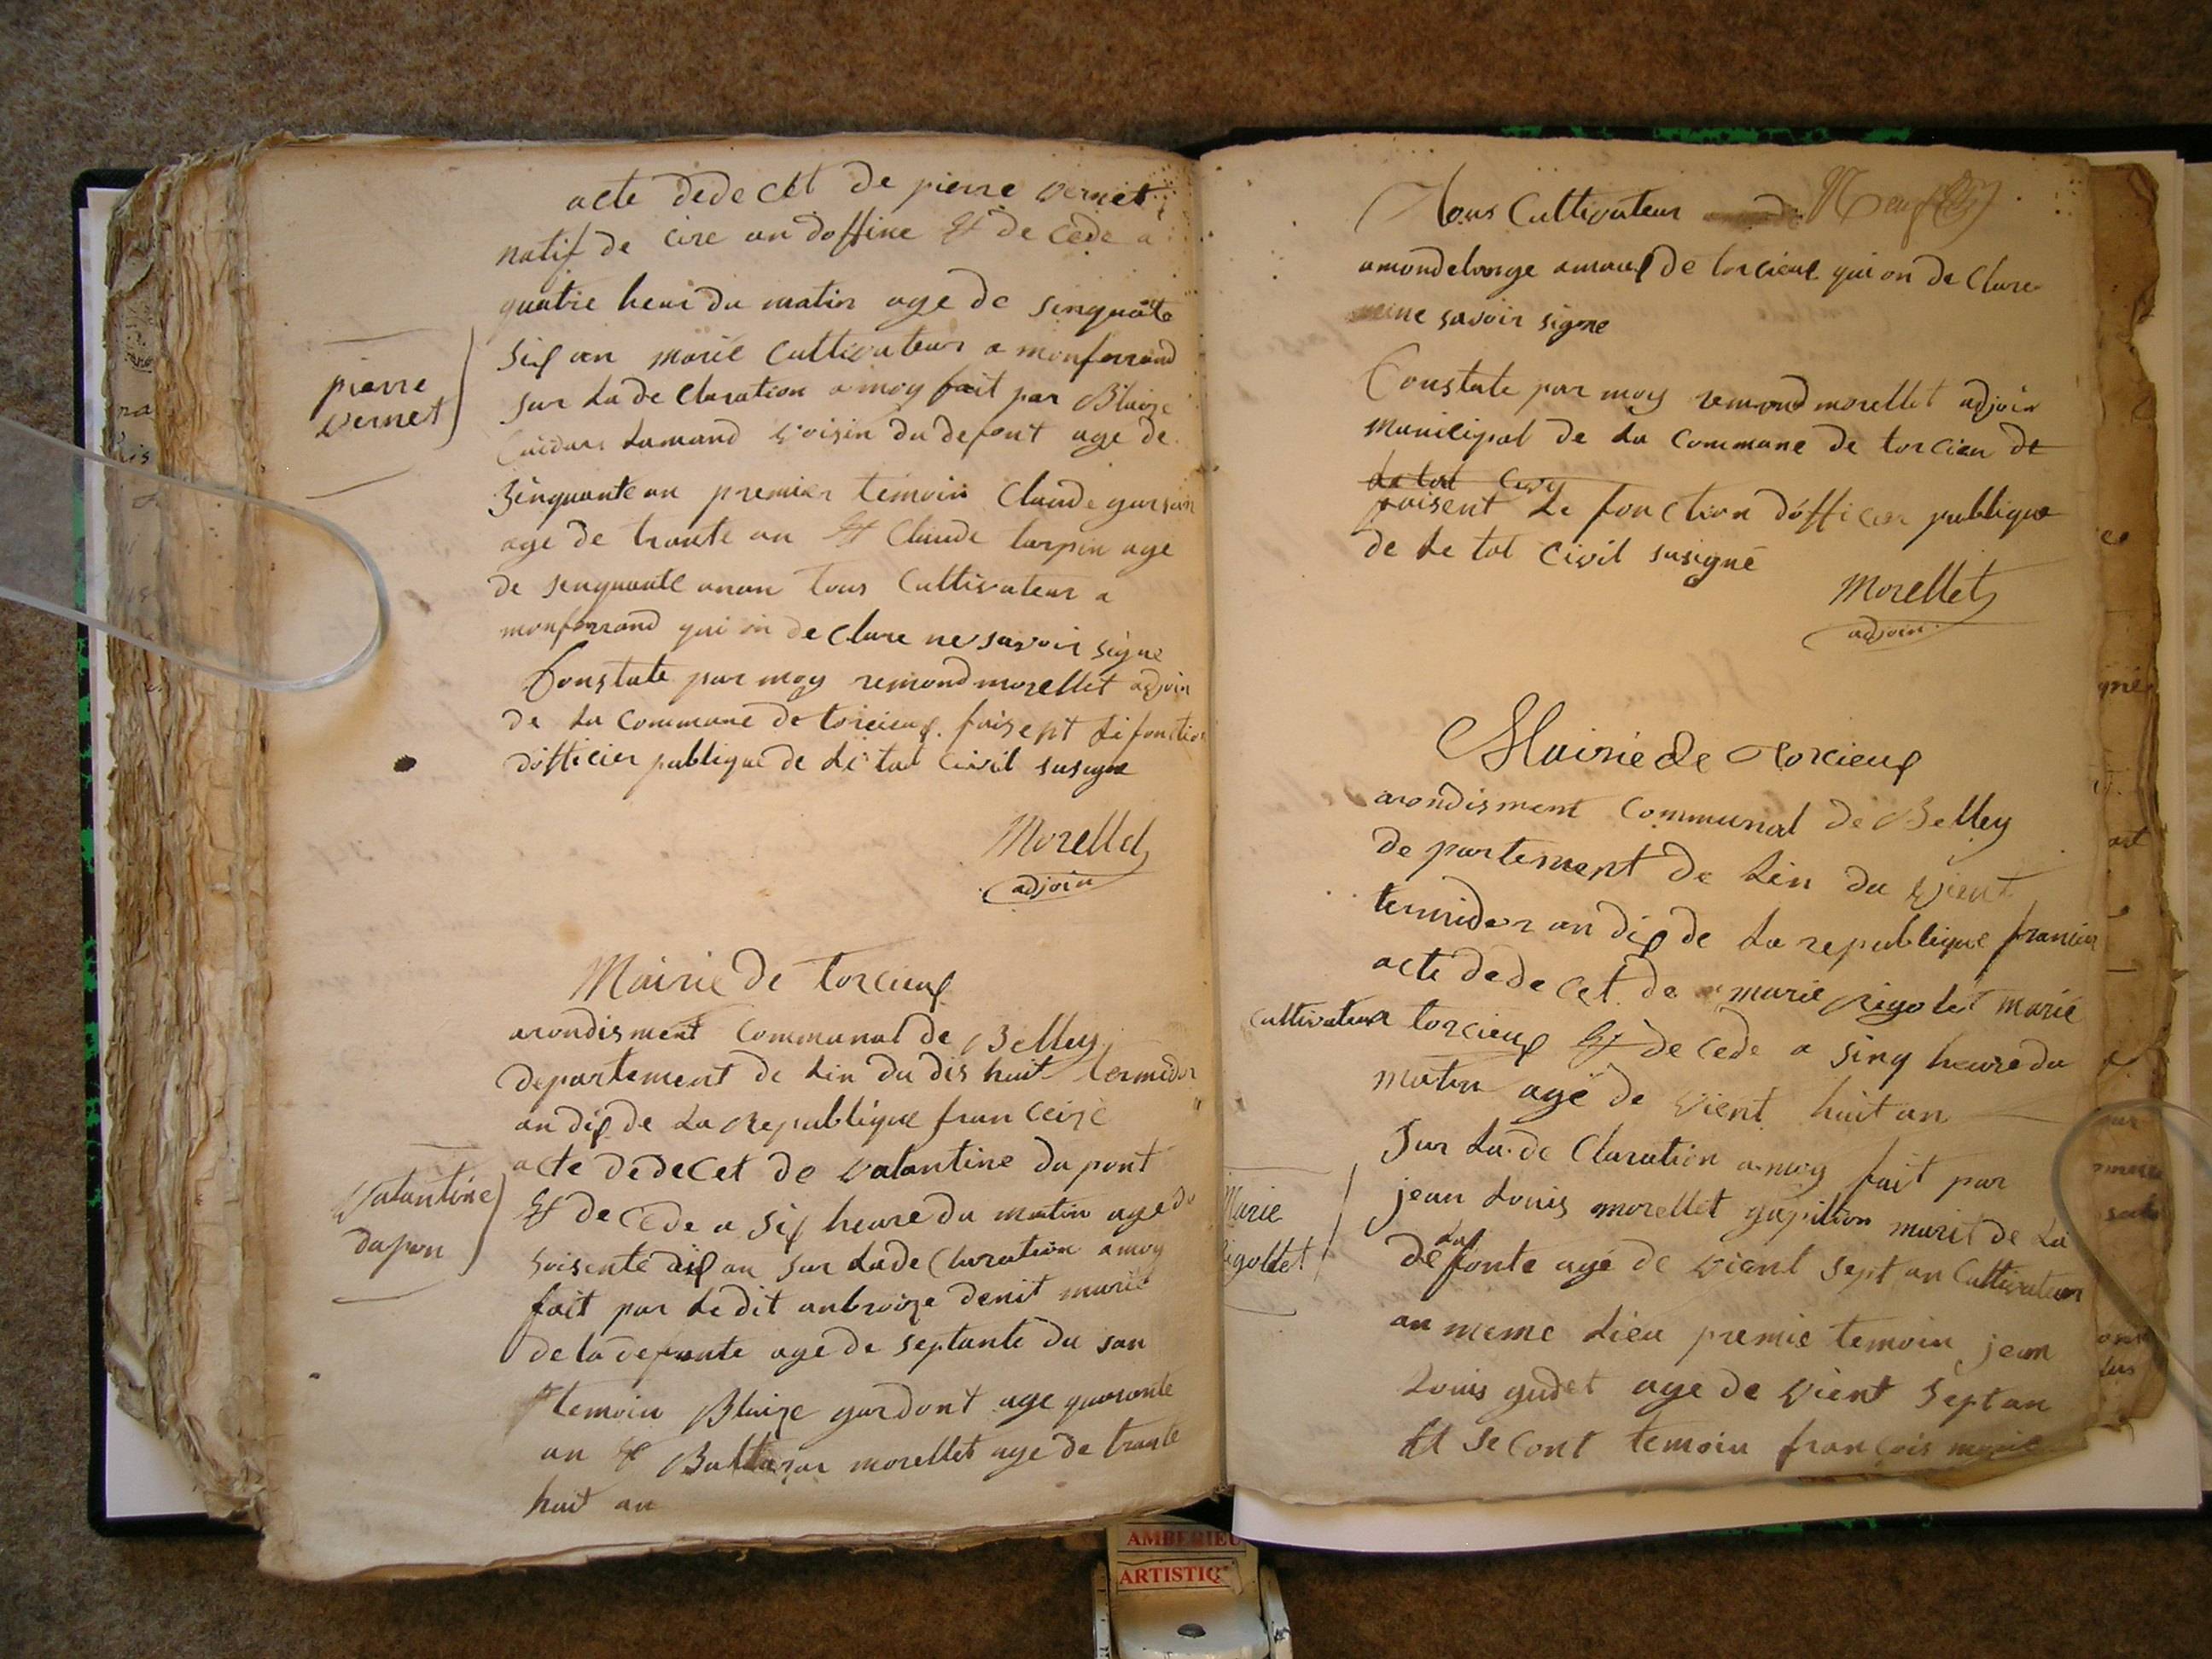 acte dedecet de pierre vernet
natif de cire an doffine Et de Cede a
quatre heur du matin age de sinquate
six an marie Cultivateur a monferrand
sur La de Claration a moy fait par Blaize
Lamand voisin du defont age de
sinquante an premier temoin Claude
age de trante an Et Claude turpin age
de senquante an tous Cultivateur a
monferrand qui on de Clare ne savoir signe
Constate par moy remond morellet adjoin
de La Commune de torcieux faisept Le fonction
dofficier publique de Le tat Civil susigne
Morellet
adjoin
pierre
vernet
Mairie de torcieux
arondisment Communal de Belley
departement de Lin du dis huit termidor
an dix de La Republique franceize
acte dedecet de valantine dupont
Et de Cede a six heure du matin age de
soisente dix an sur La de Claration a moy
fait par Le dit anbroize denit marie
de la defunte age de septante du san
temoin Blaize gurdont age quaronte
an Et Baltazar morellet age de trante
huit an
valantine
dupon
tous Cultivateur Neuf
amondelonge amaux de torcieux qui on de Clare
savoir signe
Constate par moy remond morellet adjoin
Municipal de La Commune de torcieu de
La tat Civy
faisent Le fonction dofficier publique
de Le tat Civil susigné
Morellet
adjoin
Mairie de torcieux
arondisment Communal de Belley
de partement de Lin du vient
termidor an dix de La republique
acte dedecet de marie rigolet marie
Cultivateur torcieux Et de Cede a sinq heure du
matin age de vient huit an
sur La de Claration a moy fait par
jean Louis morellet marit de La
La
defonte age de vient sept an Cultivateur
au meme Lieu premie temoin jean
Louis gudet age de vient sept an
Et seCont temoin françois marie
Marie
rigollet
AMBERIEU
ARTISTIQ